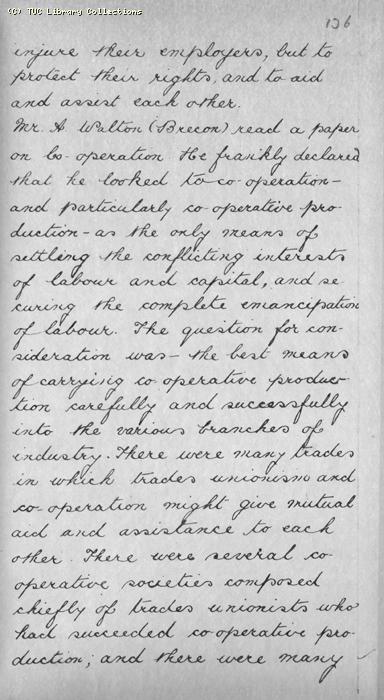 (C) TUC Library Collections
136
injure their employers, but to
protect their rights, and to aid
and assist each other.
Mr. A Walton (Brecon) read a paper
on Co-operation He frankly declared
that he looked to co-operation-
and particularly co-operative pro-
duction - as the only means of
settling the conflicting interests
of labour and capital, and se
curing the complete emancipation
of labour. The question for con-
sideration was - the best means
of carrying co-operative produc-
tion carefully and successfully
into the various branches of
industry. There were many trades
in which trades unionism and
co-operation might give mutual
aid and assistance to each
other. There were several co
operative societies composed
chiefly of trades unionists who
had succeeded co-operative pro-
duction; and there were many